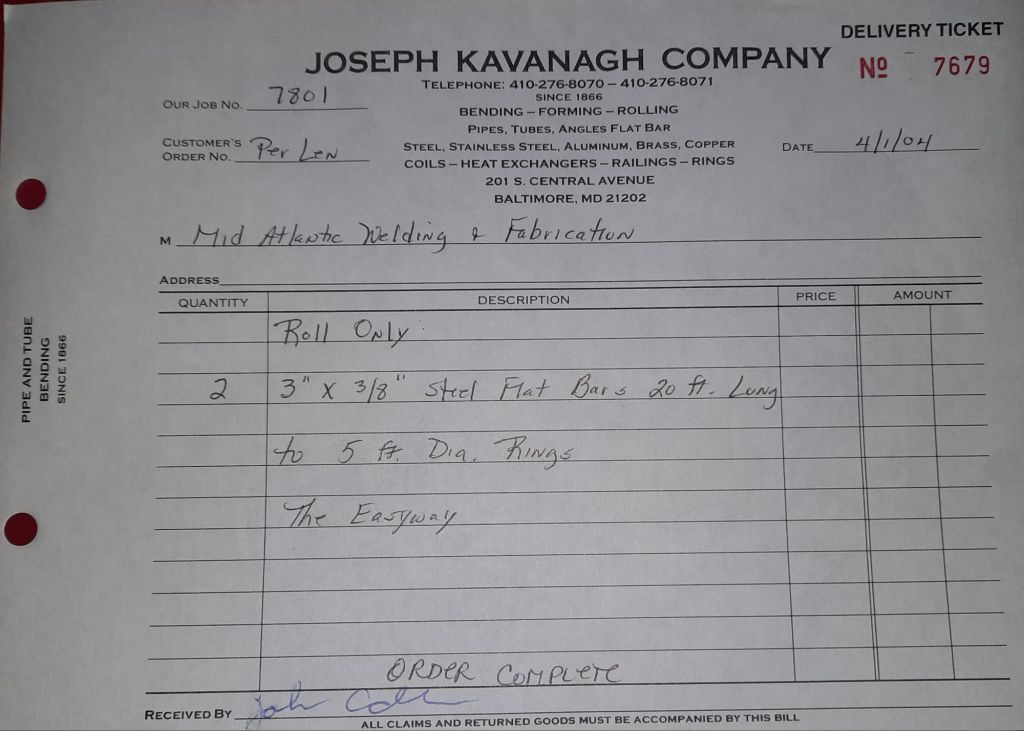 DELIVERY TICKET
JOSEPH KAVANAGH COMPANY
Nº 7679
TELEPHONE: 410-276-8070 – 410-276-8071
SINCE 1866
OUR JOB NO. 7801
BENDING – FORMING – ROLLING
PIPES, TUBES, ANGLES FLAT BAR
CUSTOMER'S
ORDER NO. Per Len
STEEL, STAINLESS STEEL, ALUMINUM, BRASS, COPPER
DATE 4/1/04
COILS – HEAT EXCHANGERS – RAILINGS – RINGS
201 S. CENTRAL AVENUE
BALTIMORE, MD 21202
M Mid Atlantic Welding & Fabrication
ADDRESS
QUANTITY DESCRIPTION PRICE AMOUNT
Roll Only
2 3" X 3/8" Steel Flat Bars 20 ft. Long
to 5 ft. Dia. Rings
The Easyway
ORDER COMPLETE
RECEIVED BY John
ALL CLAIMS AND RETURNED GOODS MUST BE ACCOMPANIED BY THIS BILL
PIPE AND TUBE
BENDING
SINCE 1866